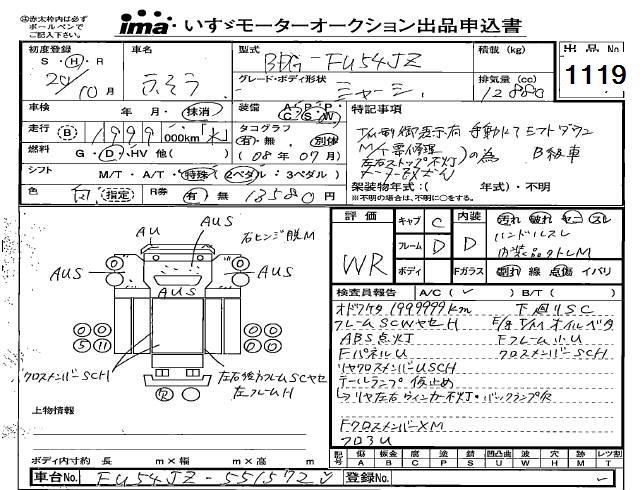 ㊟赤太枠内は必ず
ボールペンで
ご記入下さい。
ima いすゞモーターオークション出品申込書
初度登録 S・H・R 20年10月
車名 ふそう
型式 BDG-FU54JZ
グレード・ボディ形状 シャーシ
積載 (kg)
排気量 (cc) 12880
出品No 1119
車検 年・月・抹消
装備 A/C P/S P/W
走行 B 1999 000km
タコグラフ 有・無 別体 (08年07月)
燃料 G・D・HV 他( )
シフト M/T・A/T・特殊(2ペダル・3ペダル)
色 白 指定
R券 有・無 13580円
特記事項
T/M制御表示有 手動にてシフトダウン
M/T要修理
左右ストップ不灯
の為 B級車
架装物年式:( 年式)・不明
※不明の場合は、不明に○をする。
評価 WR
キャブ C
フレーム D
ボディ
内装 D
Fガラス
汚れ 破れ ヤニ スレ
ハンドルスレ
内装品クトレM
割れ 線 点傷 イバリ
検査員報告 A/C( ✓ ) B/T( )
オドメータ 1999999km 下廻りSC
フレームSCWヤセH E/g T/M オイルベタ
ABS点灯 Fフレーム小U
FパネルU クロスメンバーSCH
リヤクロスメンバーUSCH
テールランプ仮止め
→リヤ左右ウィンカー不灯・バックランプ仮
FクロスメンバーXM
フロ3U
AU
AUS
右ヒンジ脱M
AUS
AUS
AUS
5 11
クロスメンバーSCH
左右後方フレームSCヤセ
左フレームH
上物情報
ボディ内寸約 長 m×幅 m×高 m
記号 傷A 板金B 腐C 塗P 錆S 凹凸曲U 波W 穴H 跡M レツ割T
車台No. FU54JZ-551572
登録No.